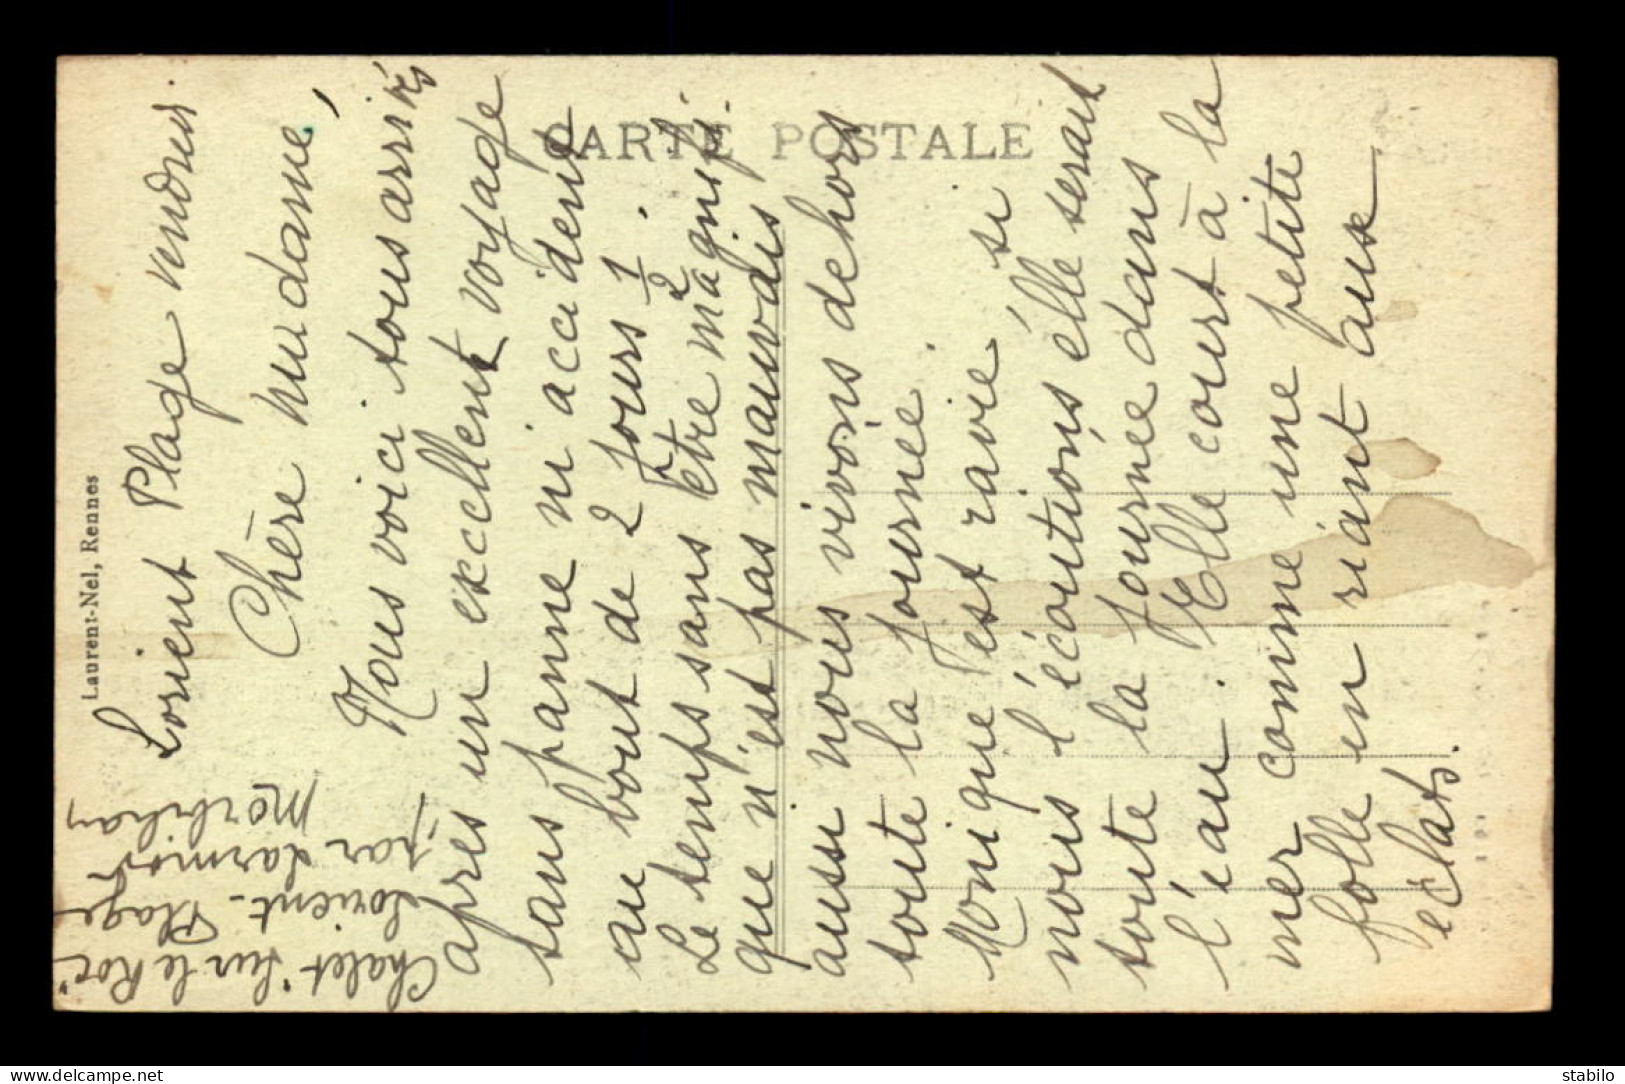 Lorient Plage vendredi
Chère madame,
Nous voici tous arrivés
après un excellent voyage
sans panne ni accident
au bout de 2 jours 1/2.
Le temps sans être magnifi-
que n'est pas mauvais
aussi nous vivons dehors
toute la journée.
Monique est ravie si
nous l'écoutions elle serait
toute la journée dans
l'eau. Elle court à la
mer comme une petite
folle en riant aux
éclats.
Chalet "Sur le Roc"
Lorient-Plage
par Larmor
Morbihan
CARTE POSTALE
Laurent-Nel, Rennes
www.delcampe.net
stabilo